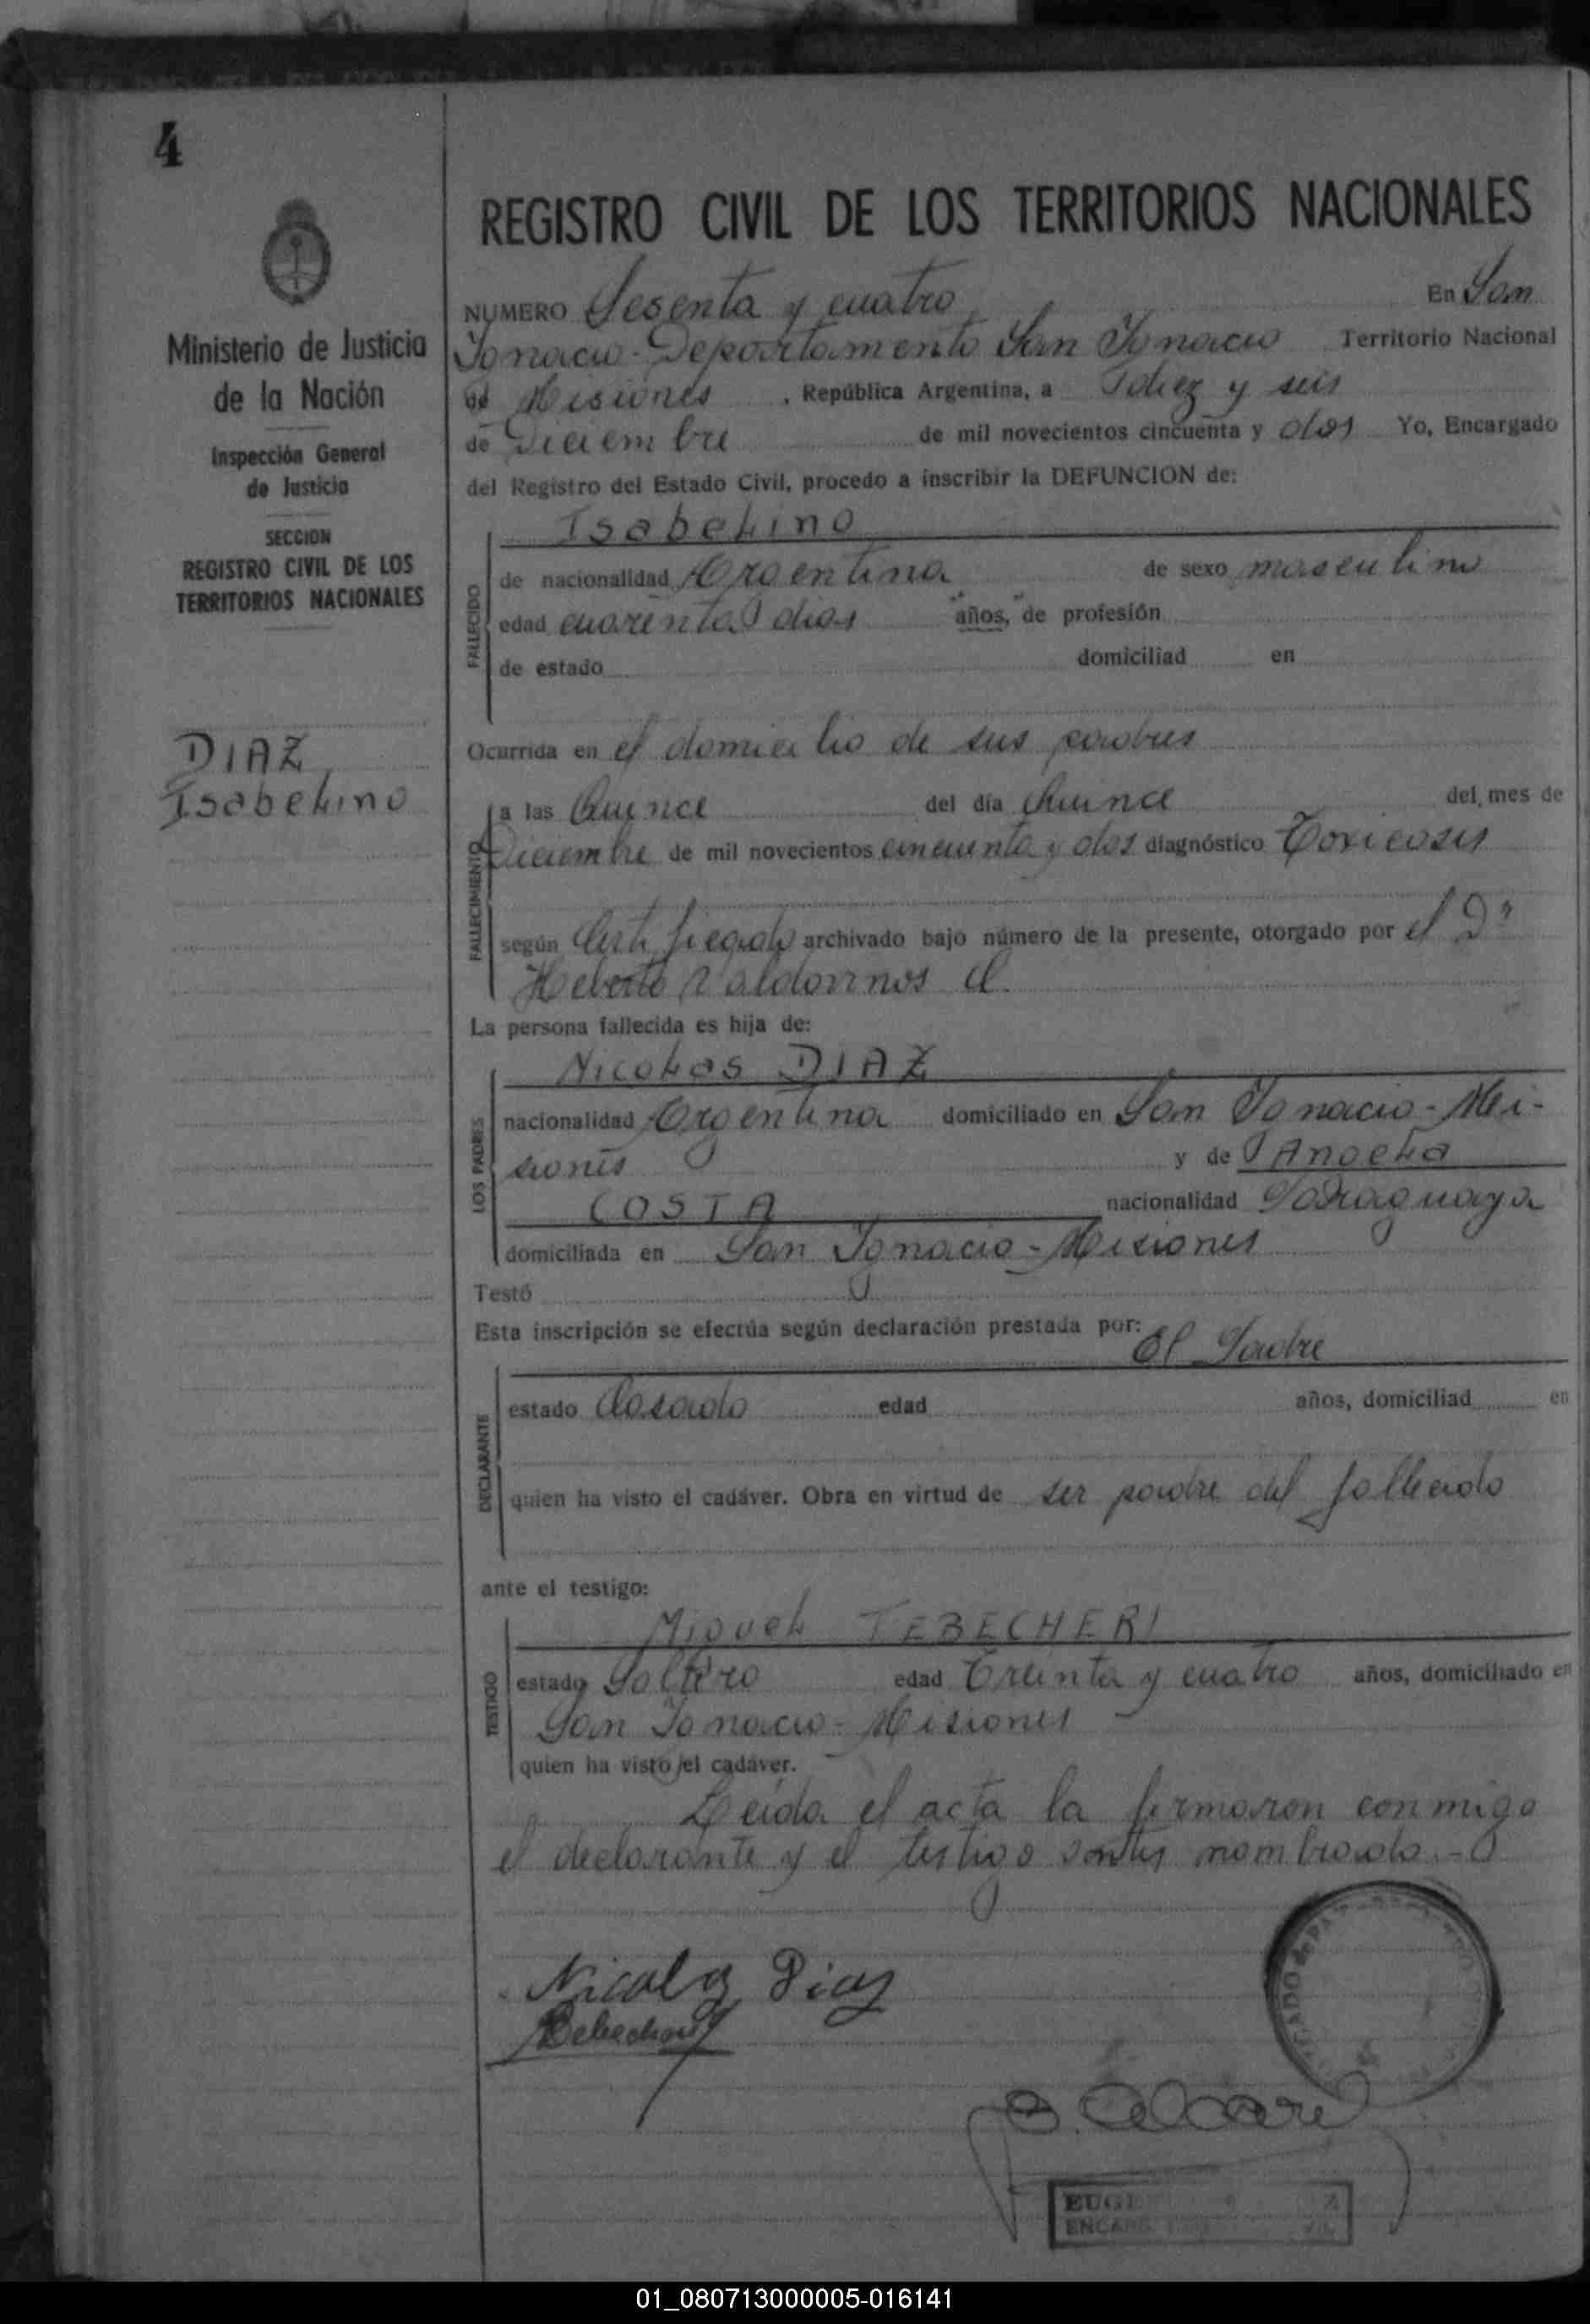 4
Ministerio de Justicia
de la Nación
Inspección General
de Justicia
SECCION
REGISTRO CIVIL DE LOS
TERRITORIOS NACIONALES
DIAZ
Isabelino
REGISTRO CIVIL DE LOS TERRITORIOS NACIONALES
NUMERO Sesenta y cuatro En San
Ignacio - Departamento San Ignacio Territorio Nacional
de Misiones , República Argentina, a Diez y seis
de Diciembre de mil novecientos cincuenta y dos Yo, Encargado
del Registro del Estado Civil, procedo a inscribir la DEFUNCION de:
Isabelino
FALLECIDO
de nacionalidad Argentina de sexo masculino
edad cuarenta dias "años," de profesión
de estado domiciliad en
Ocurrida en el domicilio de sus padres
FALLECIMIENTO
a las Quince del día Quince del mes de
Diciembre de mil novecientos cincuenta y dos diagnóstico Toxicosis
según Certificado archivado bajo número de la presente, otorgado por el Dr
Heberto Valdovinos
La persona fallecida es hija de:
Nicolas DIAZ
LOS PADRES
nacionalidad Argentina domiciliado en San Ignacio - Mi-
siones y de Angela
COSTA nacionalidad Paraguaya
domiciliada en San Ignacio - Misiones
Testó
Esta inscripción se efectúa según declaración prestada por:
El Padre
DECLARANTE
estado Casado edad años, domiciliad en
quien ha visto el cadáver. Obra en virtud de ser padre del fallecido
ante el testigo:
Miguel TEBECHERI
TESTIGO
estado Soltero edad Treinta y cuatro años, domiciliado en
San Ignacio - Misiones
quien ha visto el cadáver.
Leida el acta la firmaron conmigo
el declarante y el testigo antes nombrado.-
Nicolas Diaz
EUGE
ENCARG
01_080713000005-016141